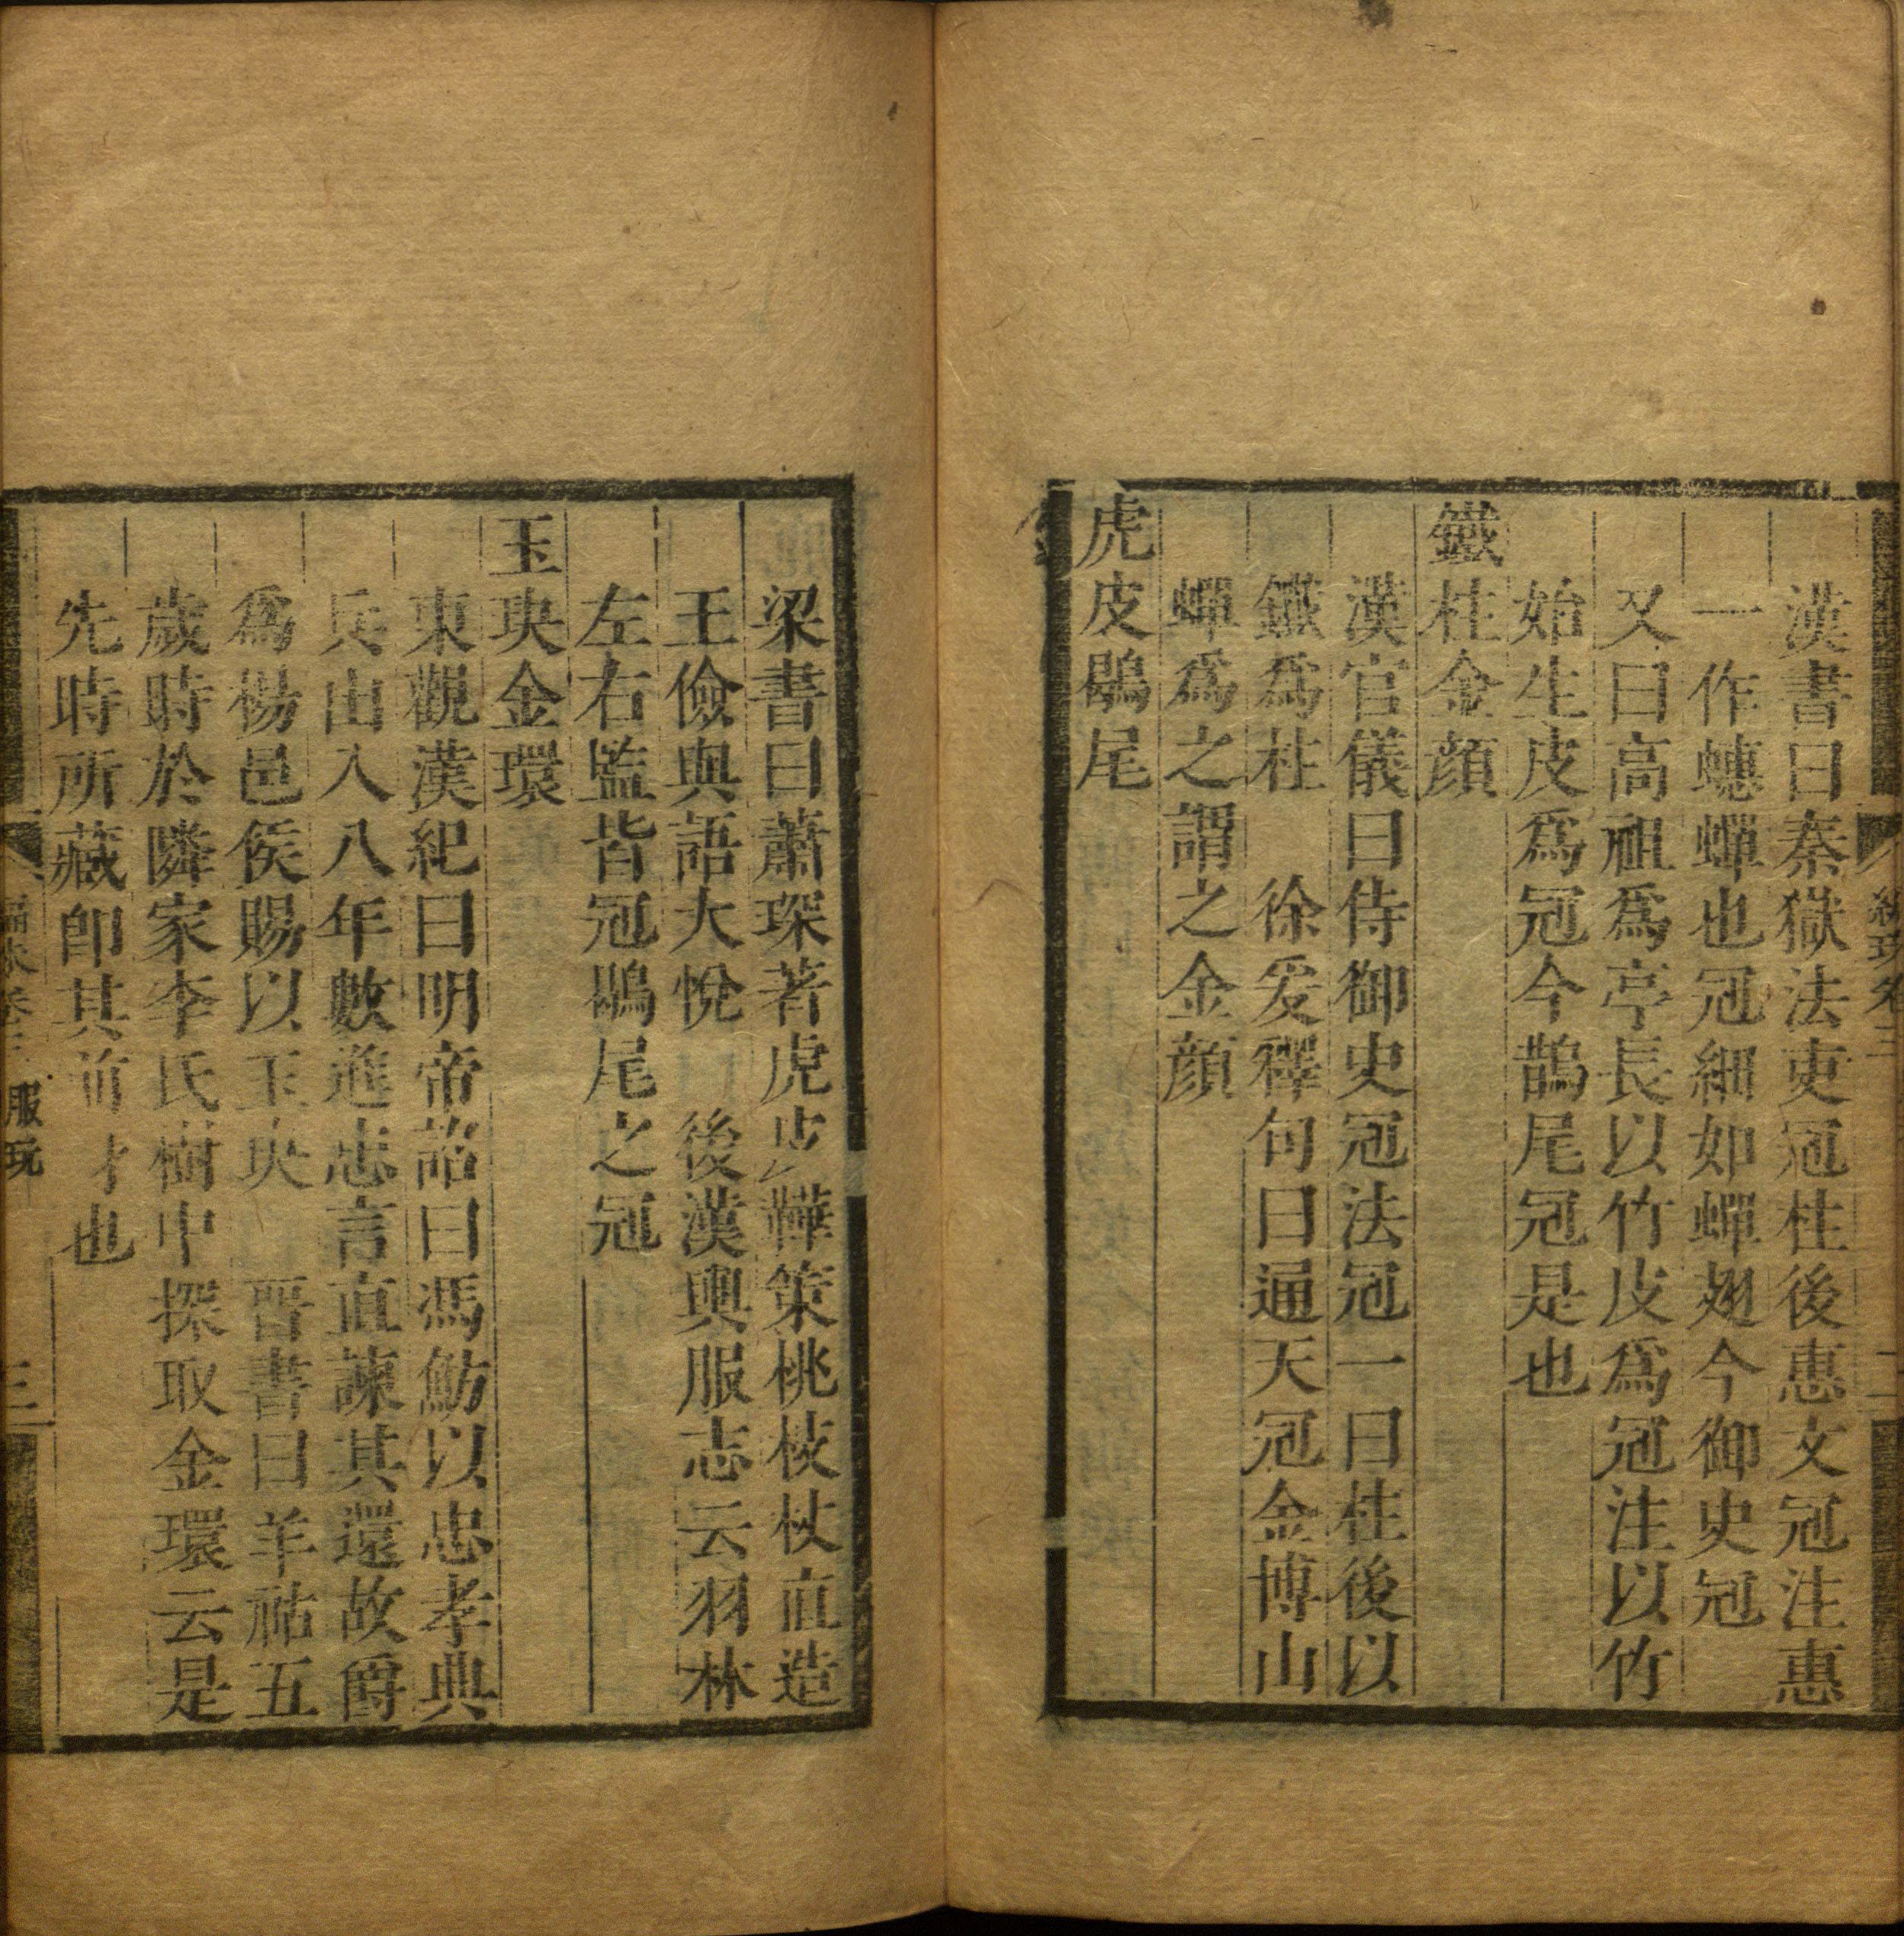 漢書曰秦獄法吏冠柱後惠文冠注惠
一作蟪蟬也冠細如蟬翅今御史冠
又曰高祖爲亭長以竹皮爲冠注以竹
始生皮爲冠今鵲尾冠是也
鐵柱金顔
漢官儀曰侍御史冠法冠一曰柱後以
鐵爲柱 徐爰釋句曰通天冠金博山
蟬爲之謂之金顔
虎皮鶡尾
梁書曰蕭琛著虎皮鞾策桃枝杖直造
王儉與語大悅 後漢輿服志云羽林
左右監皆冠鶡尾之冠
玉玦金環
東觀漢紀曰明帝詔曰馮魴以忠孝典
兵出入八年數進忠言直諫其還故爵
爲楊邑侯賜以玉玦 晉書曰羊祜五
歲時於隣家李氏樹中探取金環云是
先時所藏卽其前 也
卷三 服玩 三